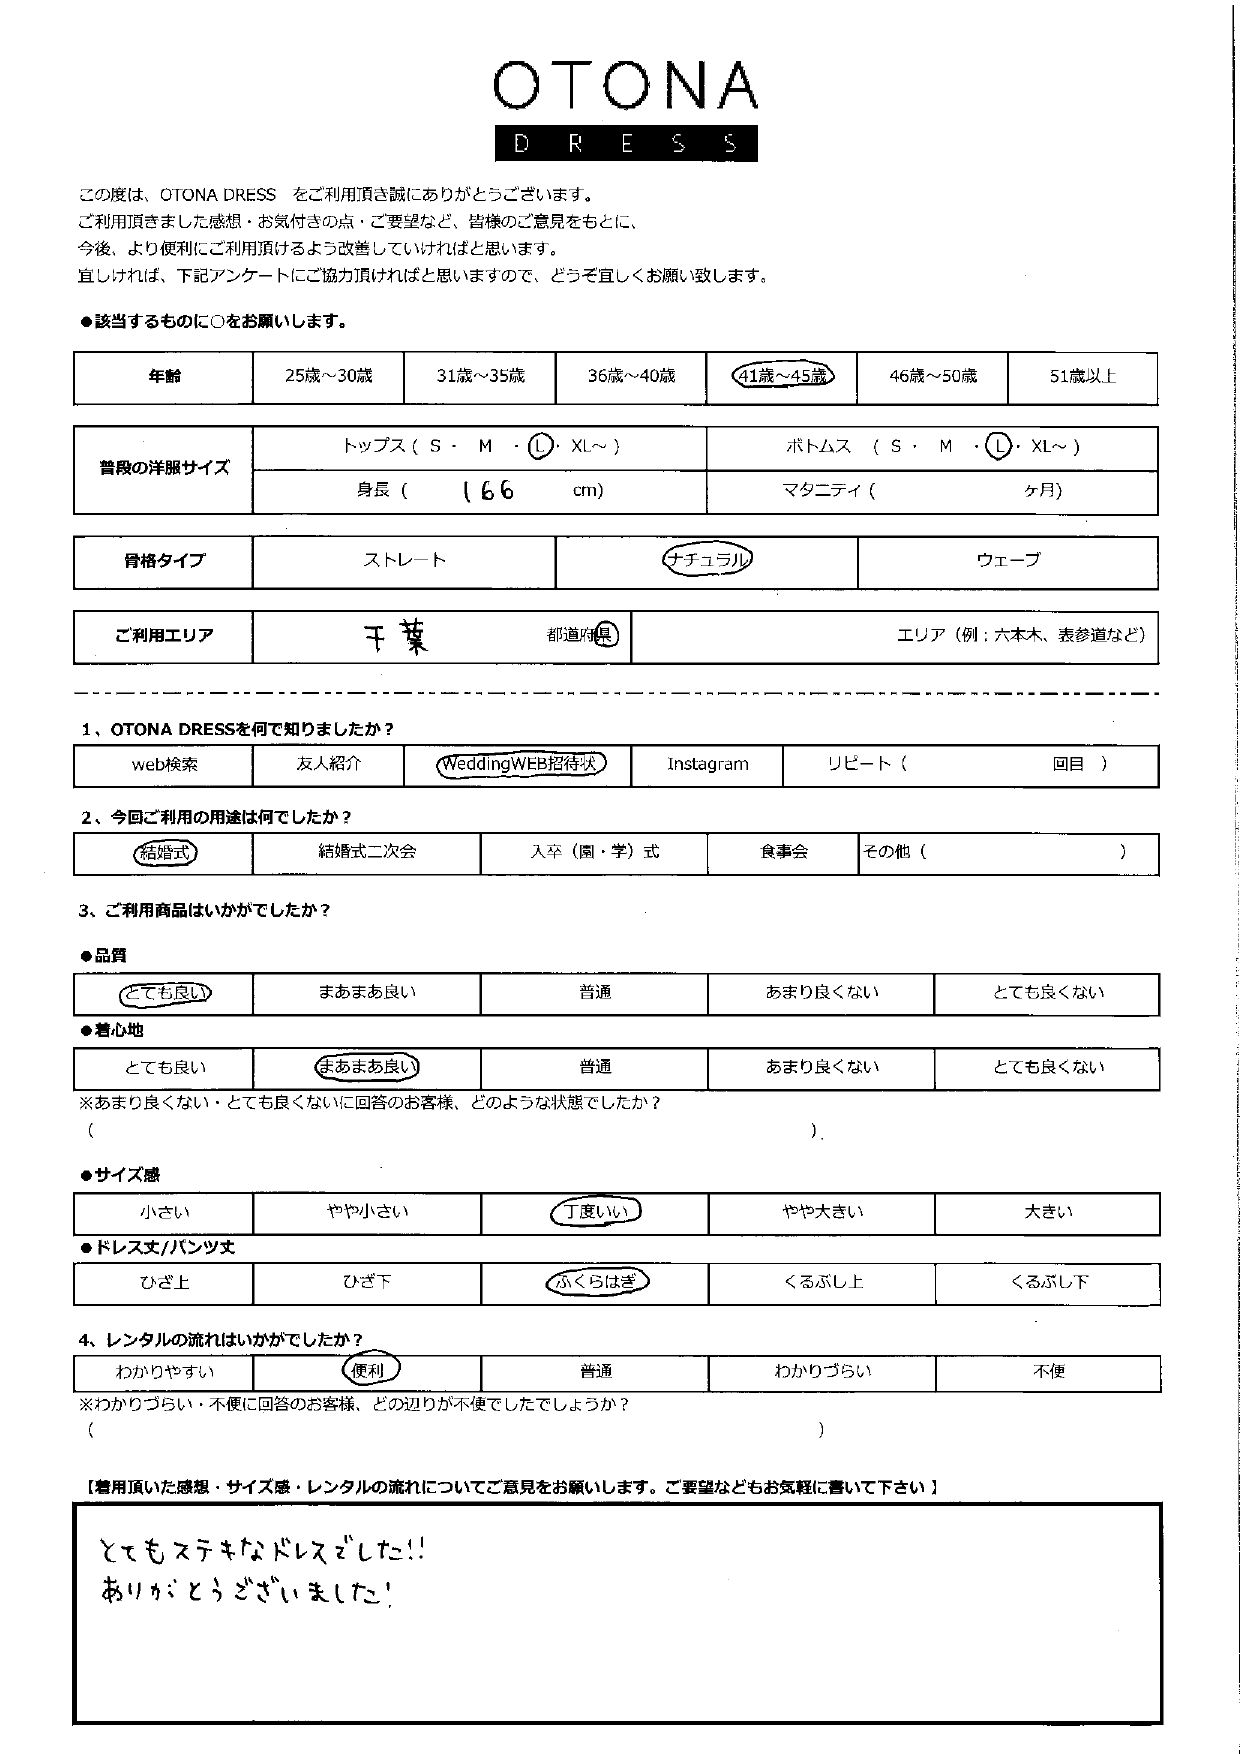 OTONA
DRESS
この度は、OTONA DRESS　をご利用頂き誠にありがとうございます。
ご利用頂きました感想・お気付きの点・ご要望など、皆様のご意見をもとに、
今後、より便利にご利用頂けるよう改善していければと思います。
宜しければ、下記アンケートにご協力頂ければと思いますので、どうぞ宜しくお願い致します。
●該当するものに○をお願いします。
年齢 25歳～30歳 31歳～35歳 36歳～40歳 41歳～45歳 46歳～50歳 51歳以上
普段の洋服サイズ トップス ( S ・ M ・ L ・ XL～ ) ボトムス ( S ・ M ・ L ・ XL～ )
身長 ( 166 cm) マタニティ ( ヶ月)
骨格タイプ ストレート ナチュラル ウェーブ
ご利用エリア 千葉 都道府県 エリア（例；六本木、表参道など）
1、OTONA DRESSを何で知りましたか？
web検索 友人紹介 WeddingWEB招待状 Instagram リピート（ 回目 ）
2、今回ご利用の用途は何でしたか？
結婚式 結婚式二次会 入卒（園・学）式 食事会 その他（ ）
3、ご利用商品はいかがでしたか？
●品質
とても良い まあまあ良い 普通 あまり良くない とても良くない
●着心地
とても良い まあまあ良い 普通 あまり良くない とても良くない
※あまり良くない・とても良くないに回答のお客様、どのような状態でしたか？
( )
●サイズ感
小さい やや小さい 丁度いい やや大きい 大きい
●ドレス丈/パンツ丈
ひざ上 ひざ下 ふくらはぎ くるぶし上 くるぶし下
4、レンタルの流れはいかがでしたか？
わかりやすい 便利 普通 わかりづらい 不便
※わかりづらい・不便に回答のお客様、どの辺りが不便でしたでしょうか？
( )
【着用頂いた感想・サイズ感・レンタルの流れについてご意見をお願いします。ご要望などもお気軽に書いて下さい】
とてもステキなドレスでした!!
ありがとうございました!